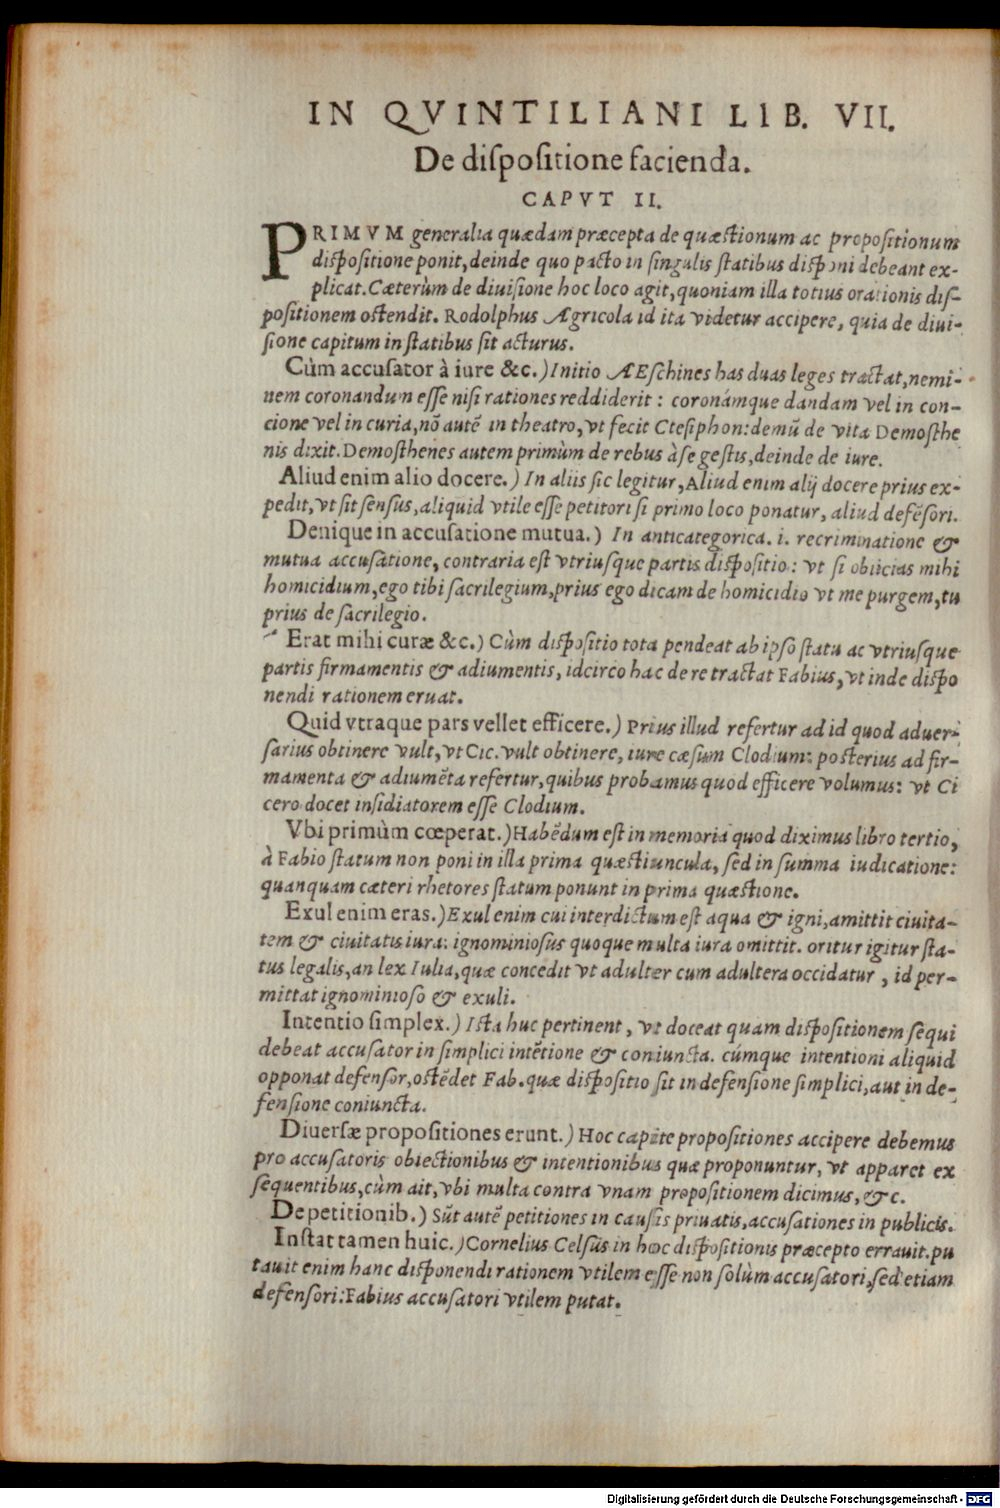 IN QVINTILIANI LIB. VII.
De dispositione facienda.
CAPVT II.
PRIMVM generalia quædam præcepta de quæstionum ac propositionum
dispositione ponit, deinde quo pacto in singulis statibus disponi debeant ex-
plicat. Cæterùm de diuisione hoc loco agit, quoniam illa totius orationis dis-
positionem ostendit. Rodolphus Agricola id ita videtur accipere, quia de diui-
sione capitum in statibus sit acturus.
Cùm accusator à iure &c.) Initio AEschines has duas leges tractat, nemi-
nem coronandum esse nisi rationes reddiderit: coronámque dandam vel in con-
cione vel in curia, nō autē in theatro, vt fecit Ctesiphon: demū de vita Demosthe
nis dixit. Demosthenes autem primùm de rebus à se gestis, deinde de iure.
Aliud enim alio docere.) In aliis sic legitur, Aliud enim alij docere prius ex-
pedit, vt sit sensus, aliquid vtile esse petitori si primo loco ponatur, aliud defēsori.
Denique in accusatione mutua.) In anticategorica. i. recriminatione &
mutua accusatione, contraria est vtriusque partis dispositio: vt si obiicias mihi
homicidium, ego tibi sacrilegium, prius ego dicam de homicidio vt me purgem, tu
prius de sacrilegio.
Erat mihi curæ &c.) Cùm dispositio tota pendeat ab ipso statu ac vtriusque
partis firmamentis & adiumentis, idcirco hac de re tractat Fabius, vt inde dispo
nendi rationem eruat.
Quid vtraque pars vellet efficere.) Prius illud refertur ad id quod aduer-
sarius obtinere vult, vt Cic. vult obtinere, iure cæsum Clodium: posterius ad fir-
mamenta & adiumēta refertur, quibus probamus quod efficere volumus: vt Ci
cero docet insidiatorem esse Clodium.
Vbi primùm cœperat.) Habēdum est in memoria quod diximus libro tertio,
à Fabio statum non poni in illa prima quæstiuncula, sed in summa iudicatione:
quanquam cæteri rhetores statum ponunt in prima quæstione.
Exul enim eras.) Exul enim cui interdictum est aqua & igni, amittit ciuita-
tem & ciuitatis iura: ignominiosus quoque multa iura omittit. oritur igitur sta-
tus legalis, an lex Iulia, quæ concedit vt adulter cum adultera occidatur, id per-
mittat ignominioso & exuli.
Intentio simplex.) Ista huc pertinent, vt doceat quam dispositionem sequi
debeat accusator in simplici intētione & coniuncta. cúmque intentioni aliquid
opponat defensor, ostēdet Fab. quæ dispositio sit in defensione simplici, aut in de-
fensione coniuncta.
Diuersæ propositiones erunt.) Hoc capite propositiones accipere debemus
pro accusatoris obiectionibus & intentionibus quæ proponuntur, vt apparet ex
sequentibus, cùm ait, vbi multa contra vnam propositionem dicimus, &c.
De petitionib.) Sūt autē petitiones in causis priuatis, accusationes in publicis.
Instat tamen huic.) Cornelius Celsus in hoc dispositionis præcepto errauit. pu
tauit enim hanc disponendi rationem vtilem esse non solùm accusatori, sed etiam
defensori: Fabius accusatori vtilem putat.
Digitalisierung gefördert durch die Deutsche Forschungsgemeinschaft - DFG